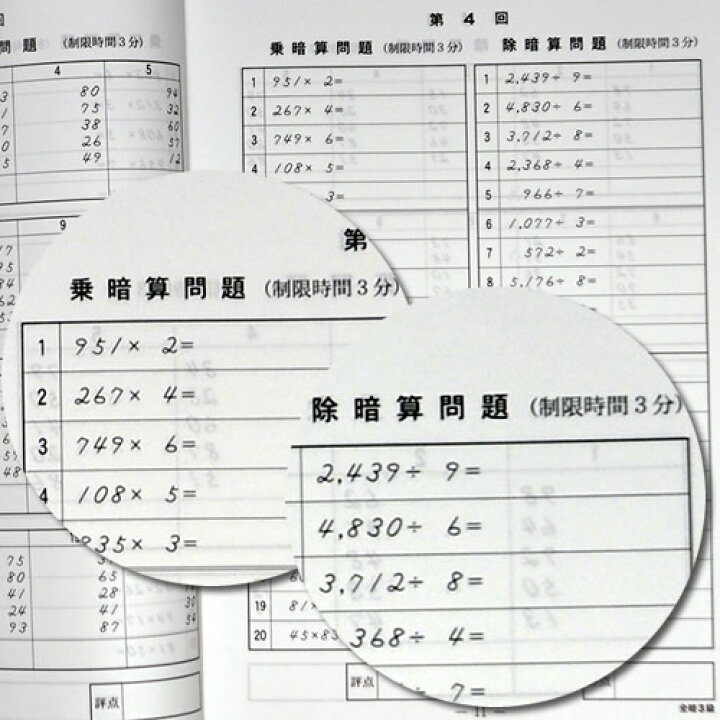 回
第 4 回
問題 (制限時間3分)
4 5
80 94
75 32
38 60
26 57
49 12
乗暗算問題 (制限時間3分)
1 951× 2=
2 267× 4=
3 749× 6=
4 108× 5=
3=
除暗算問題 (制限時間3分)
1 2,439÷ 9=
2 4,830÷ 6=
3 3,712÷ 8=
4 2,368÷ 4=
5 966÷ 7=
6 1,077÷ 3=
7 572÷ 2=
8 5,176÷ 8=
9
第
乗暗算問題 (制限時間3分)
1 951× 2=
2 267× 4=
3 749× 6=
4 108× 5=
835× 3=
除暗算問題 (制限時間3分)
2,439÷ 9=
4,830÷ 6=
3,712÷ 8=
368÷ 4=
7=
75
80 65
41 28
24 41
93 87 54
19 81×
20 45×83
評点
評点
— 11 —
全暗3級